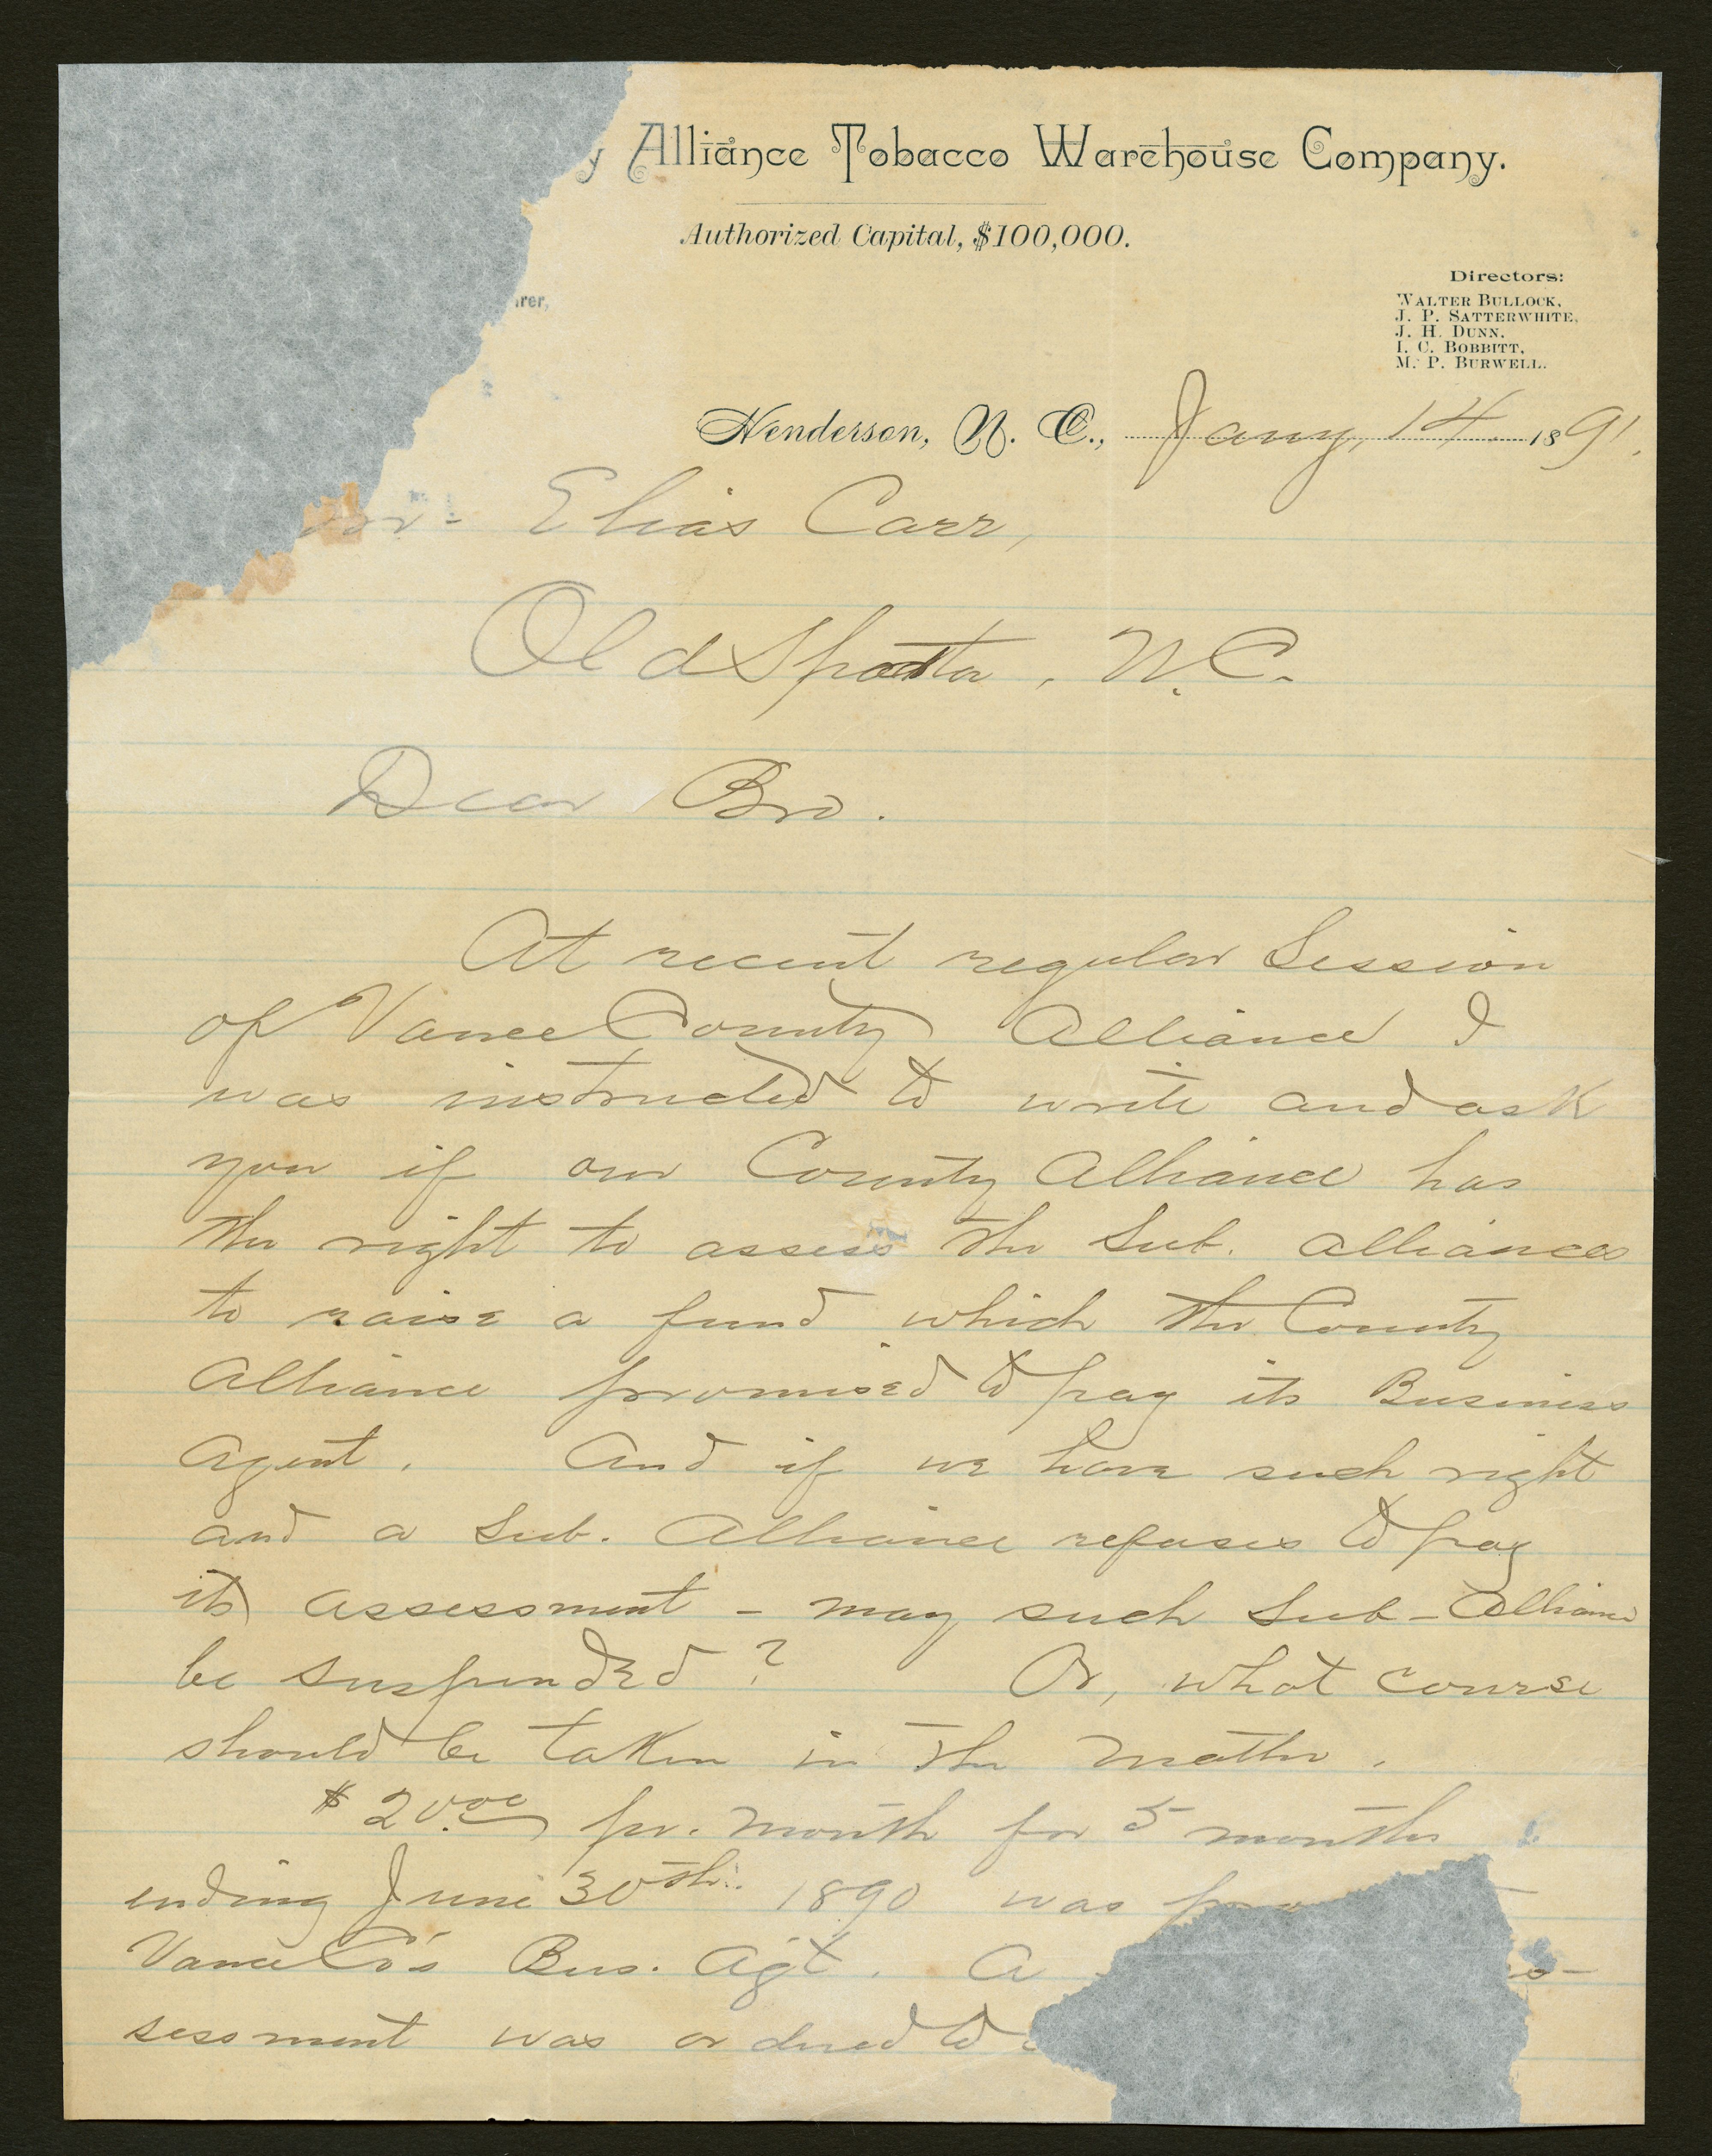 y Alliance Tobacco Warehouse Company.
Authorized Capital, $100,000.
Directors:
WALTER BULLOCK,
J. P. SATTERWHITE,
J. H. DUNN,
I. C. BOBBITT,
M. P. BURWELL.
rer,
Henderson, N. C., Jany, 14 1891.
Elias Carr,
Old Sparta, N.C.
Dear Bro.
At recent regular Session
of Vance County Alliance I
was instructed to write and ask
you if our County Alliance has
the right to assess the Sub. Alliances
to raise a fund which the County
Alliance promised to pay its Business
Agent. And if we have such right
and a Sub. Alliance refuses to pay
its assessment - may such Sub-Alliance
be suspended? Or, what course
should be taken in the matter.
$20.00 pr. month for 5 months
ending June 30th. 1890 was
Vance Co's Bus. Agt. A
sessment was ordered to